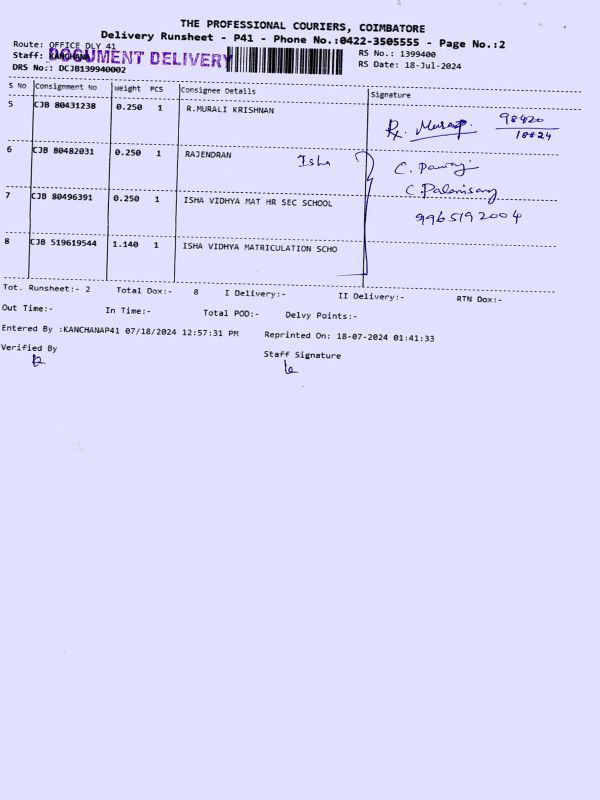 THE PROFESSIONAL COURIERS, COIMBATORE
Delivery Runsheet - P41 - Phone No.:0422-3505555 - Page No.:2
Route: OFFICE DLY 41
RS No.: 1399400
Staff: KANCHANA
DOCUMENT DELIVERY
RS Date: 18-Jul-2024
DRS No.: DCJB139940002
S No Consignment No Weight PCS Consignee Details Signature
5 CJB 80431238 0.250 1 R.MURALI KRISHNAN
98420
18824
6 CJB 80482031 0.250 1 RAJENDRAN Isha
C. Palanisamy
7 CJB 80496391 0.250 1 ISHA VIDHYA MAT HR SEC SCHOOL
9965192004
8 CJB 519619544 1.140 1 ISHA VIDHYA MATRICULATION SCHO
Tot. Runsheet:- 2 Total Dox:- 8 I Delivery:- II Delivery:- RTN Dox:-
Out Time:- In Time:- Total POD:- Delvy Points:-
Entered By :KANCHANAP41 07/18/2024 12:57:31 PM Reprinted On: 18-07-2024 01:41:33
Verified By Staff Signature